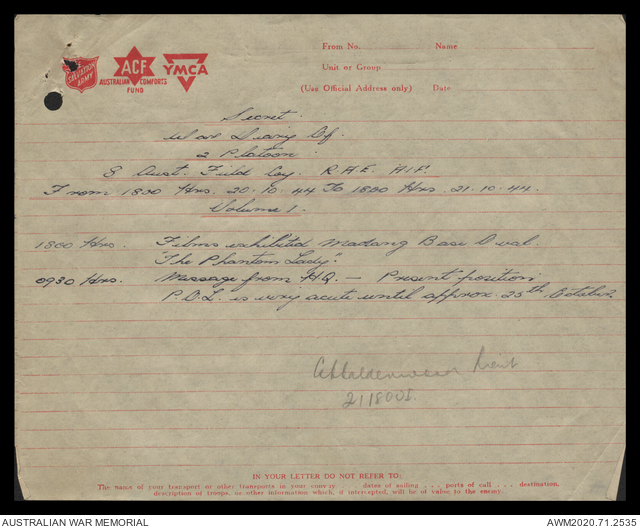 From No. Name
Unit or Group
(Use Official Address only) Date
SALVATION ARMY
ACF
AUSTRALIAN COMFORTS
FUND
YMCA
Secret.
War Diary Of.
2 Platoon.
8 Aust. Field Coy. R.A.E. A.I.F.
From 1800 Hrs. 20.10.44 To 1800 Hrs. 21.10.44.
Volume 1.
1800 Hrs. Films exhibited Madang Base Oval.
"The Phantom Lady".
0930 Hrs. Message from H.Q. — Present position
P.O.L. is very acute until approx 25th October.
Lieut
IN YOUR LETTER DO NOT REFER TO:
The name of your transport or other transports in your convoy . . . dates of sailing . . . ports of call . . . destination,
description of troops, or other information which, if intercepted, will be of value to the enemy.
AUSTRALIAN WAR MEMORIAL
AWM2020.71.2535